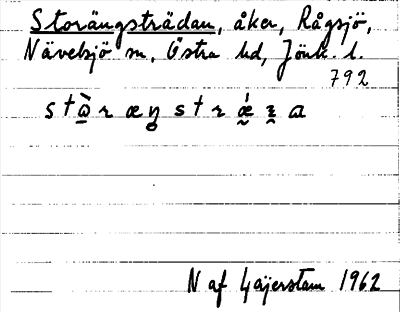 Storängsträdan, åker, Rågsjö,
Nävelsjö sn, Östra hd, Jönk. l.
792
N af Gajerstam 1962